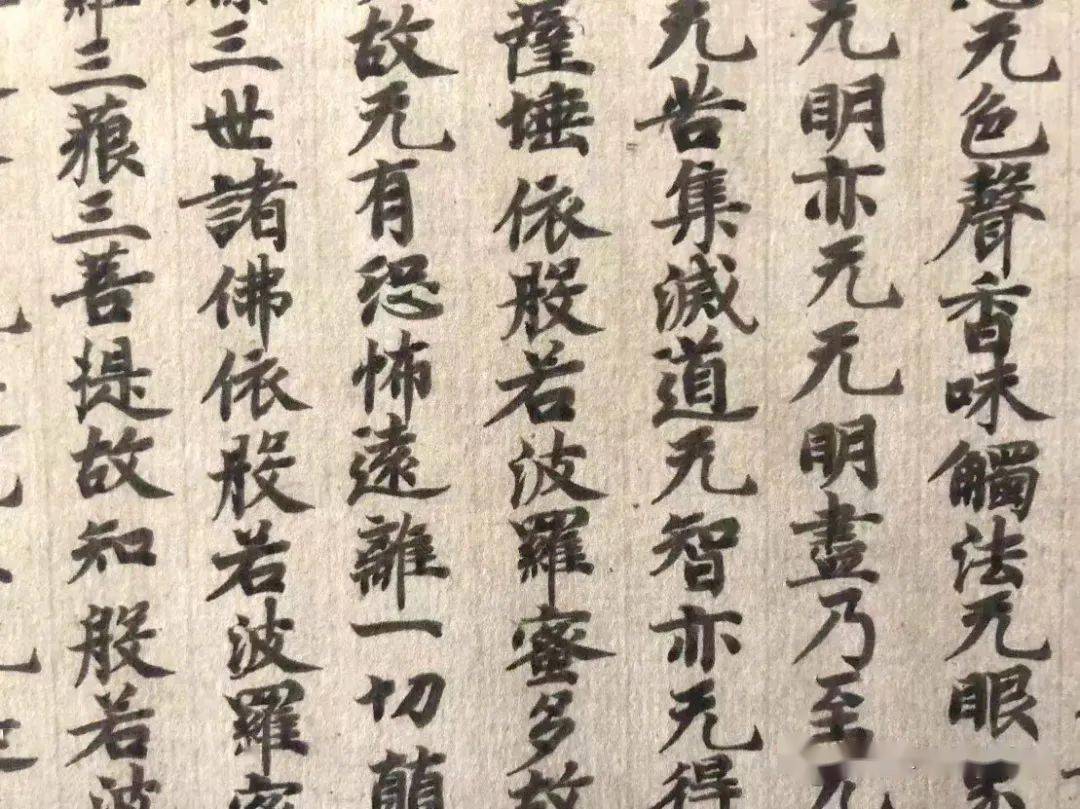 无色聲香味觸法无眼
无明亦无无明盡乃至
无苦集滅道无智亦无得
薩埵依般若波羅蜜多故
故无有恐怖遠離一切顛
三世諸佛依般若波羅蜜
三藐三菩提故知般若波